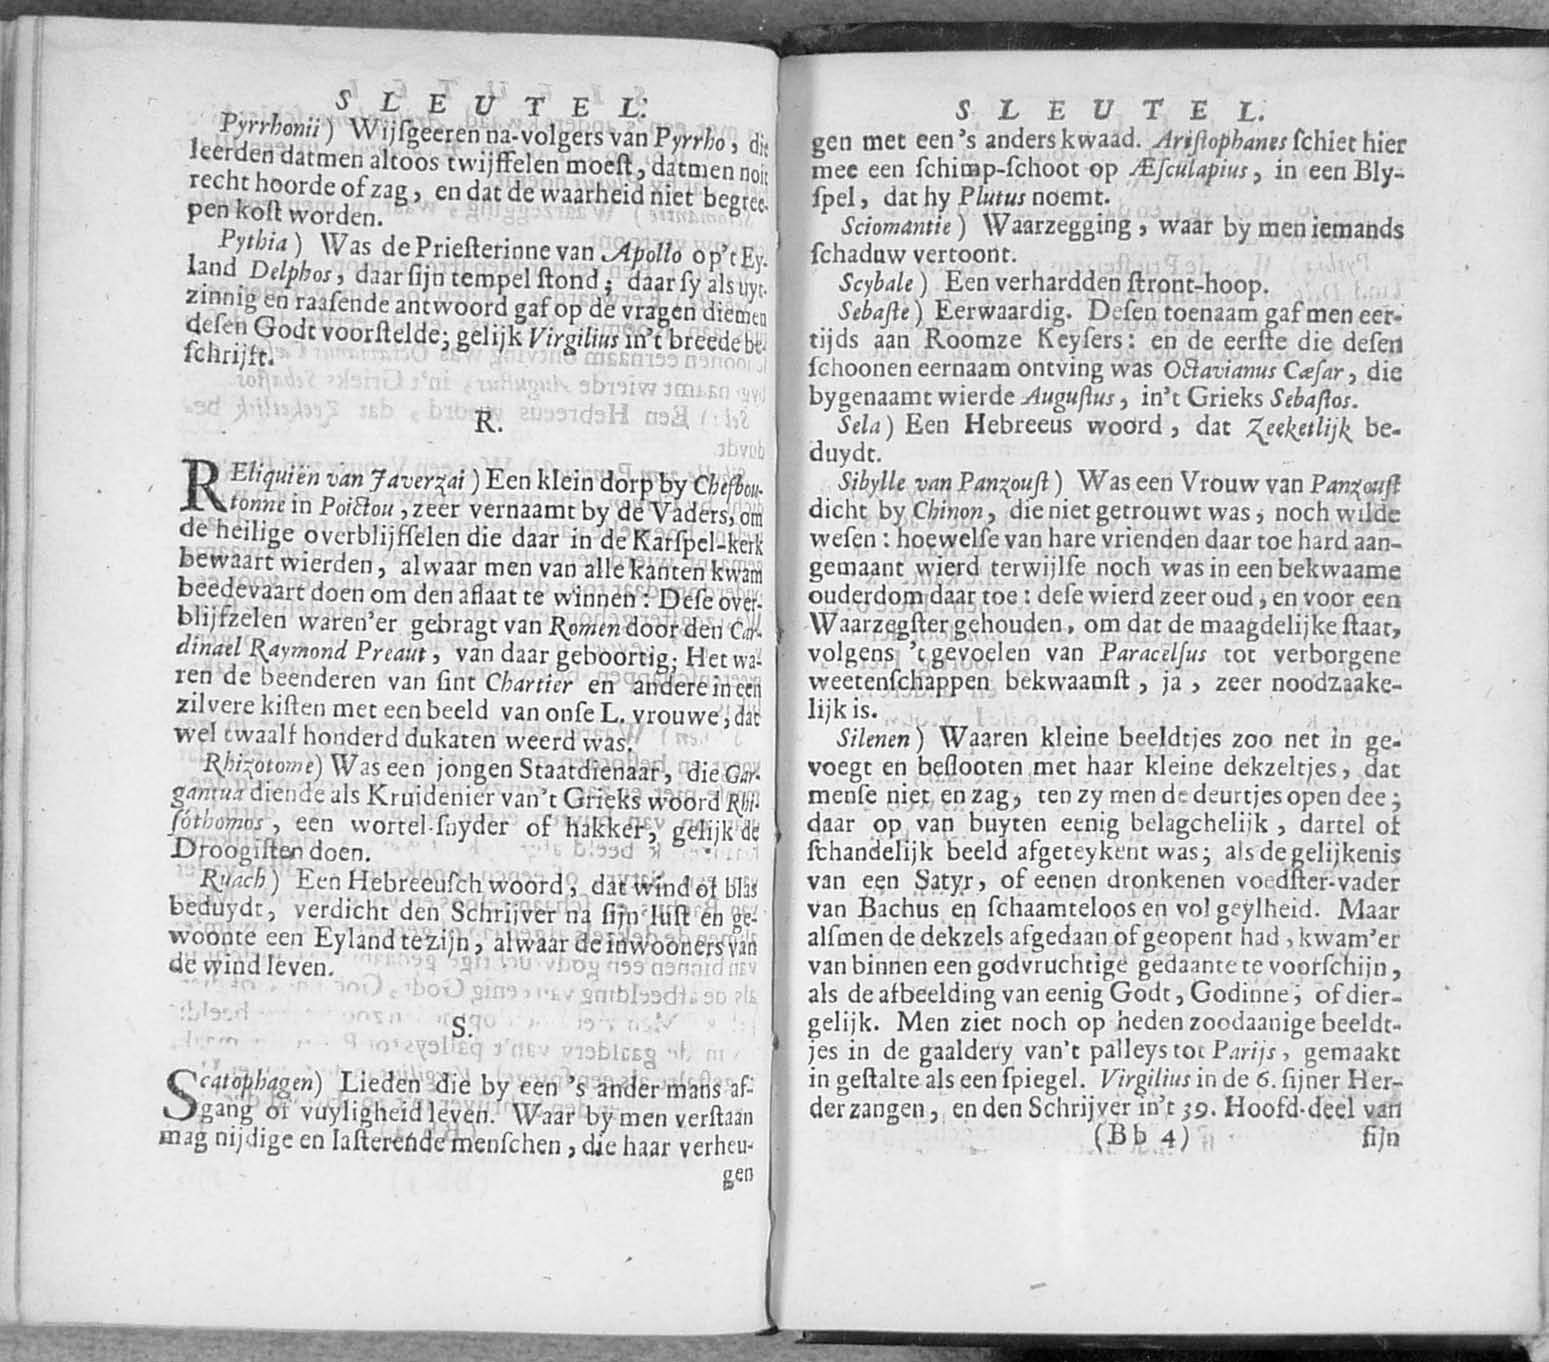 S L E U T E L.
Pyrrhonii) Wijſgeeren na-volgers van Pyrrho, die
leerden datmen altoos twijffelen moeſt, datmen noit
recht hoorde of zag, en dat de waarheid niet begree-
pen koſt worden.
Pythia) Was de Prieſterinne van Apollo op't Ey-
land Delphos, daar ſijn tempel ſtond; daar ſy als uyt-
zinnig en raaſende antwoord gaf op de vragen diemen
deſen Godt voorſtelde; gelijk Virgilius in't breede be-
ſchrijft.
R.
REliquiën van Javerzai) Een klein dorp by Chefbou-
tonne in Poictou, zeer vernaamt by de Vaders, om
de heilige overblijfſelen die daar in de Karſpel-kerk
bewaart wierden, alwaar men van alle kanten kwam
beedevaart doen om den aflaat te winnen: Deſe over-
blijfzelen waren'er gebragt van Romen door den Car-
dinael Raymond Preaut, van daar geboortig; Het wa-
ren de beenderen van ſint Chartier en andere in een
zilvere kiſten met een beeld van onſe L. vrouwe, dat
wel twaalf honderd dukaten weerd was.
Rhizotome) Was een jongen Staatdienaar, die Gar-
gantua diende als Kruidenier van't Grieks woord Rhi-
ſothomos, een wortel-ſnyder of hakker, gelijk de
Droogiſten doen.
Ruach) Een Hebreeuſch woord, dat wind of blas
beduydt, verdicht den Schrijver na ſijn luſt en ge-
woonte een Eyland te zijn, alwaar de inwooners van
de wind leven.
S.
Scatophagen) Lieden die by een 's ander mans af-
gang of vuyligheid leven. Waar by men verſtaan
mag nijdige en laſterende menſchen, die haar verheu-
gen
S L E U T E L.
gen met een 's anders kwaad. Ariſtophanes ſchiet hier
mee een ſchimp-ſchoot op Æſculapius, in een Bly-
ſpel, dat hy Plutus noemt.
Sciomantie) Waarzegging, waar by men iemands
ſchaduw vertoont.
Scybale) Een verhardden ſtront-hoop.
Sebaſte) Eerwaardig. Deſen toenaam gaf men eer-
tijds aan Roomze Keyſers: en de eerſte die deſen
ſchoonen eernaam ontving was Octavianus Cæſar, die
bygenaamt wierde Auguſtus, in't Grieks Sebaſtos.
Sela) Een Hebreeus woord, dat Zeeketlijk be-
duydt.
Sibylle van Panzouſt) Was een Vrouw van Panzouſt
dicht by Chinon, die niet getrouwt was, noch wilde
weſen: hoewelſe van hare vrienden daar toe hard aan-
gemaant wierd terwijlſe noch was in een bekwaame
ouderdom daar toe: deſe wierd zeer oud, en voor een
Waarzegſter gehouden, om dat de maagdelijke ſtaat,
volgens 't gevoelen van Paracelſus tot verborgene
weetenſchappen bekwaamſt, ja, zeer noodzaake-
lijk is.
Silenen) Waaren kleine beeldtjes zoo net in ge-
voegt en beſlooten met haar kleine dekzeltjes, dat
menſe niet en zag, ten zy men de deurtjes open dee;
daar op van buyten eenig belagchelijk, dartel of
ſchandelijk beeld afgeteykent was; als de gelijkenis
van een Satyr, of eenen dronkenen voedſter-vader
van Bachus en ſchaamteloos en vol geylheid. Maar
alſmen de dekzels afgedaan of geopent had, kwam'er
van binnen een godvruchtige gedaante te voorſchijn,
als de afbeelding van eenig Godt, Godinne, of dier-
gelijk. Men ziet noch op heden zoodaanige beeldt-
jes in de gaaldery van't palleys tot Parijs, gemaakt
in geſtalte als een ſpiegel. Virgilius in de 6. ſijner Her-
derzangen, en den Schrijver in't 39. Hoofd-deel van
(Bb 4) ſijn